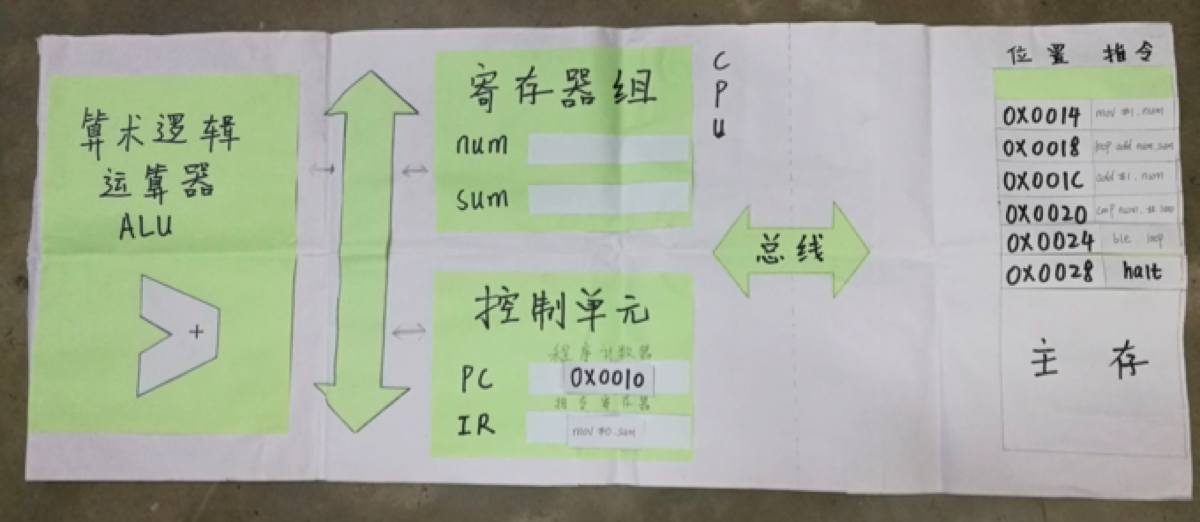 算术逻辑
运算器
ALU
+
寄存器组
num
sum
控制单元
程序计数器
PC 0X0010
指令寄存器
IR mov #0.sum
CPU
总线
位置 指令
0X0014 mov #1.num
0X0018 loop add num.sum
0X001C add #1.num
0X0020 cmp num.#
0X0024 ble loop
0X0028 halt
主存